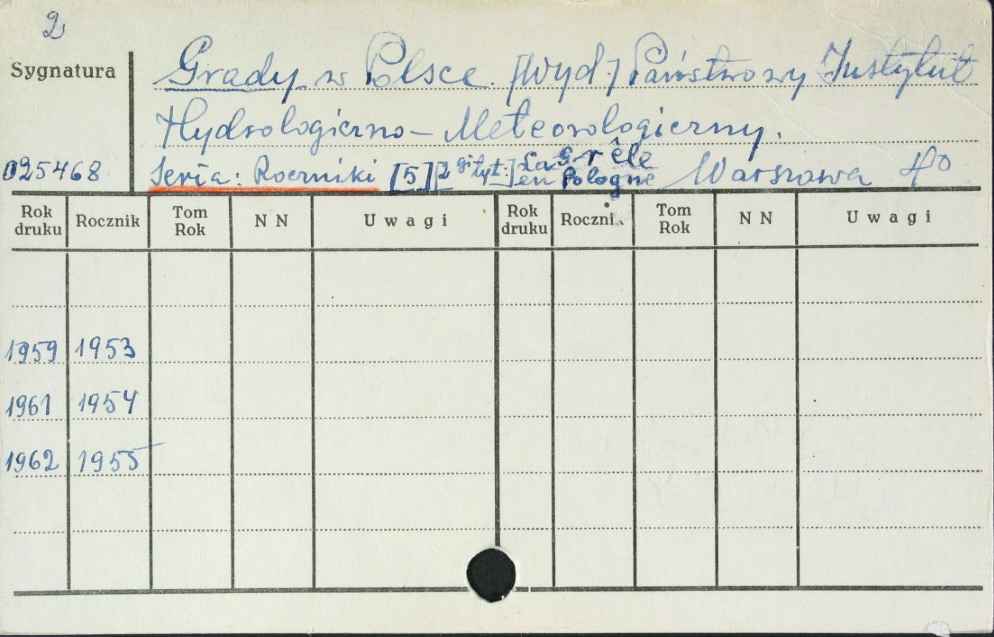 2
Sygnatura
Grady w Polsce. [Wyd.] Państwowy Instytut
Hydrologiczno-Meteorologiczny.
025468 Seria: Roczniki [5] [2 gi tyt.] La Grêle en Pologne Warszawa 4º
Rok druku Rocznik Tom Rok N N Uwagi Rok druku Roczni. Tom Rok N N Uwagi
1959 1953
1961 1954
1962 1955